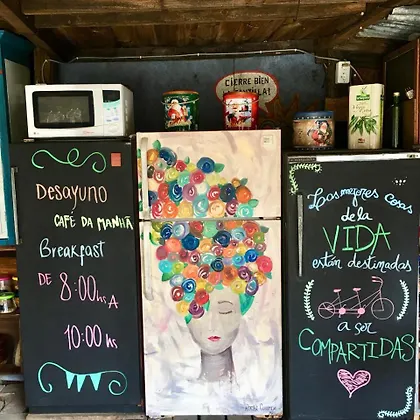 CIERRE BIEN
LA CANILLA!
Desayuno
CAFÉ DA MANHÃ
Breakfast
DE 8:00hs A
10:00 hs
Las mejores cosas
de la
VIDA
están destinadas
a ser
COMPARTIDAS